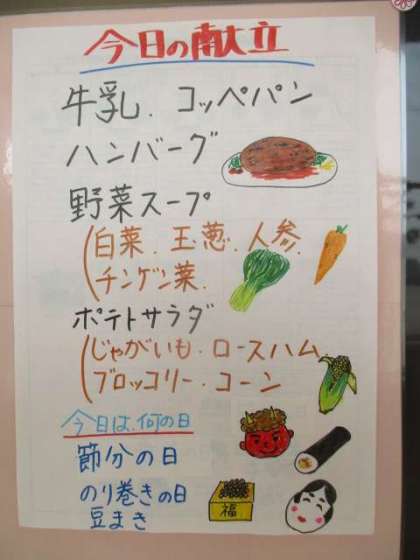 今日の献立
牛乳．コッペパン
ハンバーグ
野菜スープ
(白菜．玉葱．人参．
チンゲン菜．
ポテトサラダ
(じゃがいも．ロースハム
ブロッコリー．コーン
今日は、何の日
節分の日
のり巻きの日
豆まき
福